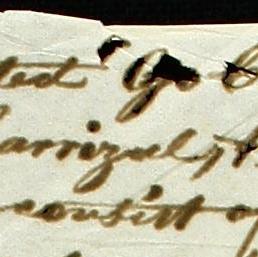 ted "Go
arrizal, th
consist of